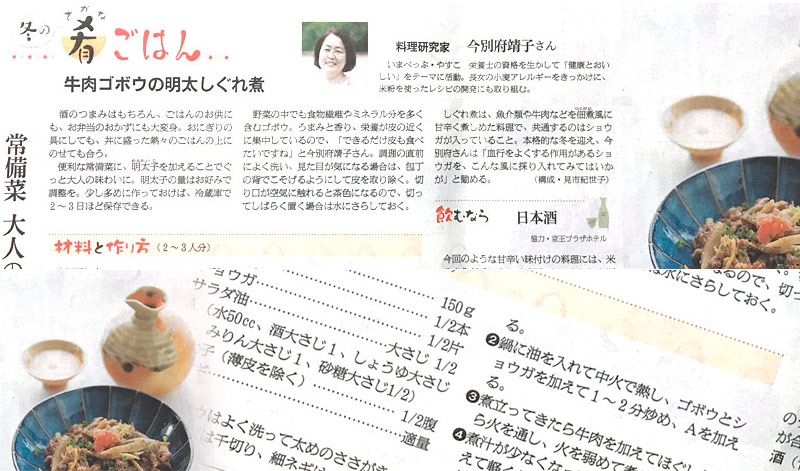 冬の
さかな
肴ごはん…
牛肉ゴボウの明太しぐれ煮
料理研究家 今別府靖子さん
いまべっぷ・やすこ 栄養士の資格を生かして「健康とおい
しい」をテーマに活動。長女の小麦アレルギーをきっかけに、
米粉を使ったレシピの開発にも取り組む。
常備菜 大人の
酒のつまみはもちろん、ごはんのお供に
も、お弁当のおかずにも大変身。おにぎりの
具にしても、丼に盛った熱々のごはんの上に
のせても合う。
便利な常備菜に、明太子を加えることでぐ
っと大人の味わいに。明太子の量はお好みで
調整を。少し多めに作っておけば、冷蔵庫で
2〜3日ほど保存できる。
野菜の中でも食物繊維やミネラル分を多く
含むゴボウ。うまみと香り、栄養が皮の近く
に集中しているので、「できるだけ皮も食べ
たいですね」と今別府靖子さん。調理の直前
によく洗い、見た目が気になる場合は、包丁
の背でこそげるようにして皮を取り除く。切
り口が空気に触れると茶色になるので、切っ
てしばらく置く場合は水にさらしておく。
しぐれ煮は、魚介類や牛肉などを佃煮風に
甘辛く煮しめた料理で、共通するのはショウ
ガが入っていること。本格的な冬を迎え、今
別府さんは「血行をよくする作用があるショ
ウガを、こんな風に採り入れてみてはいか
が」と勧める。
(構成・見市紀世子)
飲むなら 日本酒
協力・京王プラザホテル
今回のような甘辛い味付けの料理には、米
材料と作り方(2〜3人分)
なるので、切っ
は水にさらしておく。
150g
1/2本
ョウガ 1/2片
サラダ油 大さじ 1/2
(水50cc、酒大さじ1、しょうゆ大さじ
みりん大さじ1、砂糖大さじ1/2)
子(薄皮を除く) 1/2腹
適量
はよく洗って太めのささが
は千切り、細ネギは
る。
❷鍋に油を入れて中火で熱し、ゴボウとシ
ョウガを加えて1〜2分炒め、Aを加え
る。
❸煮立ってきたら牛肉を加えてほぐし
ら火を通し、火を弱めて煮
❹煮汁が少なくな
えて軽く